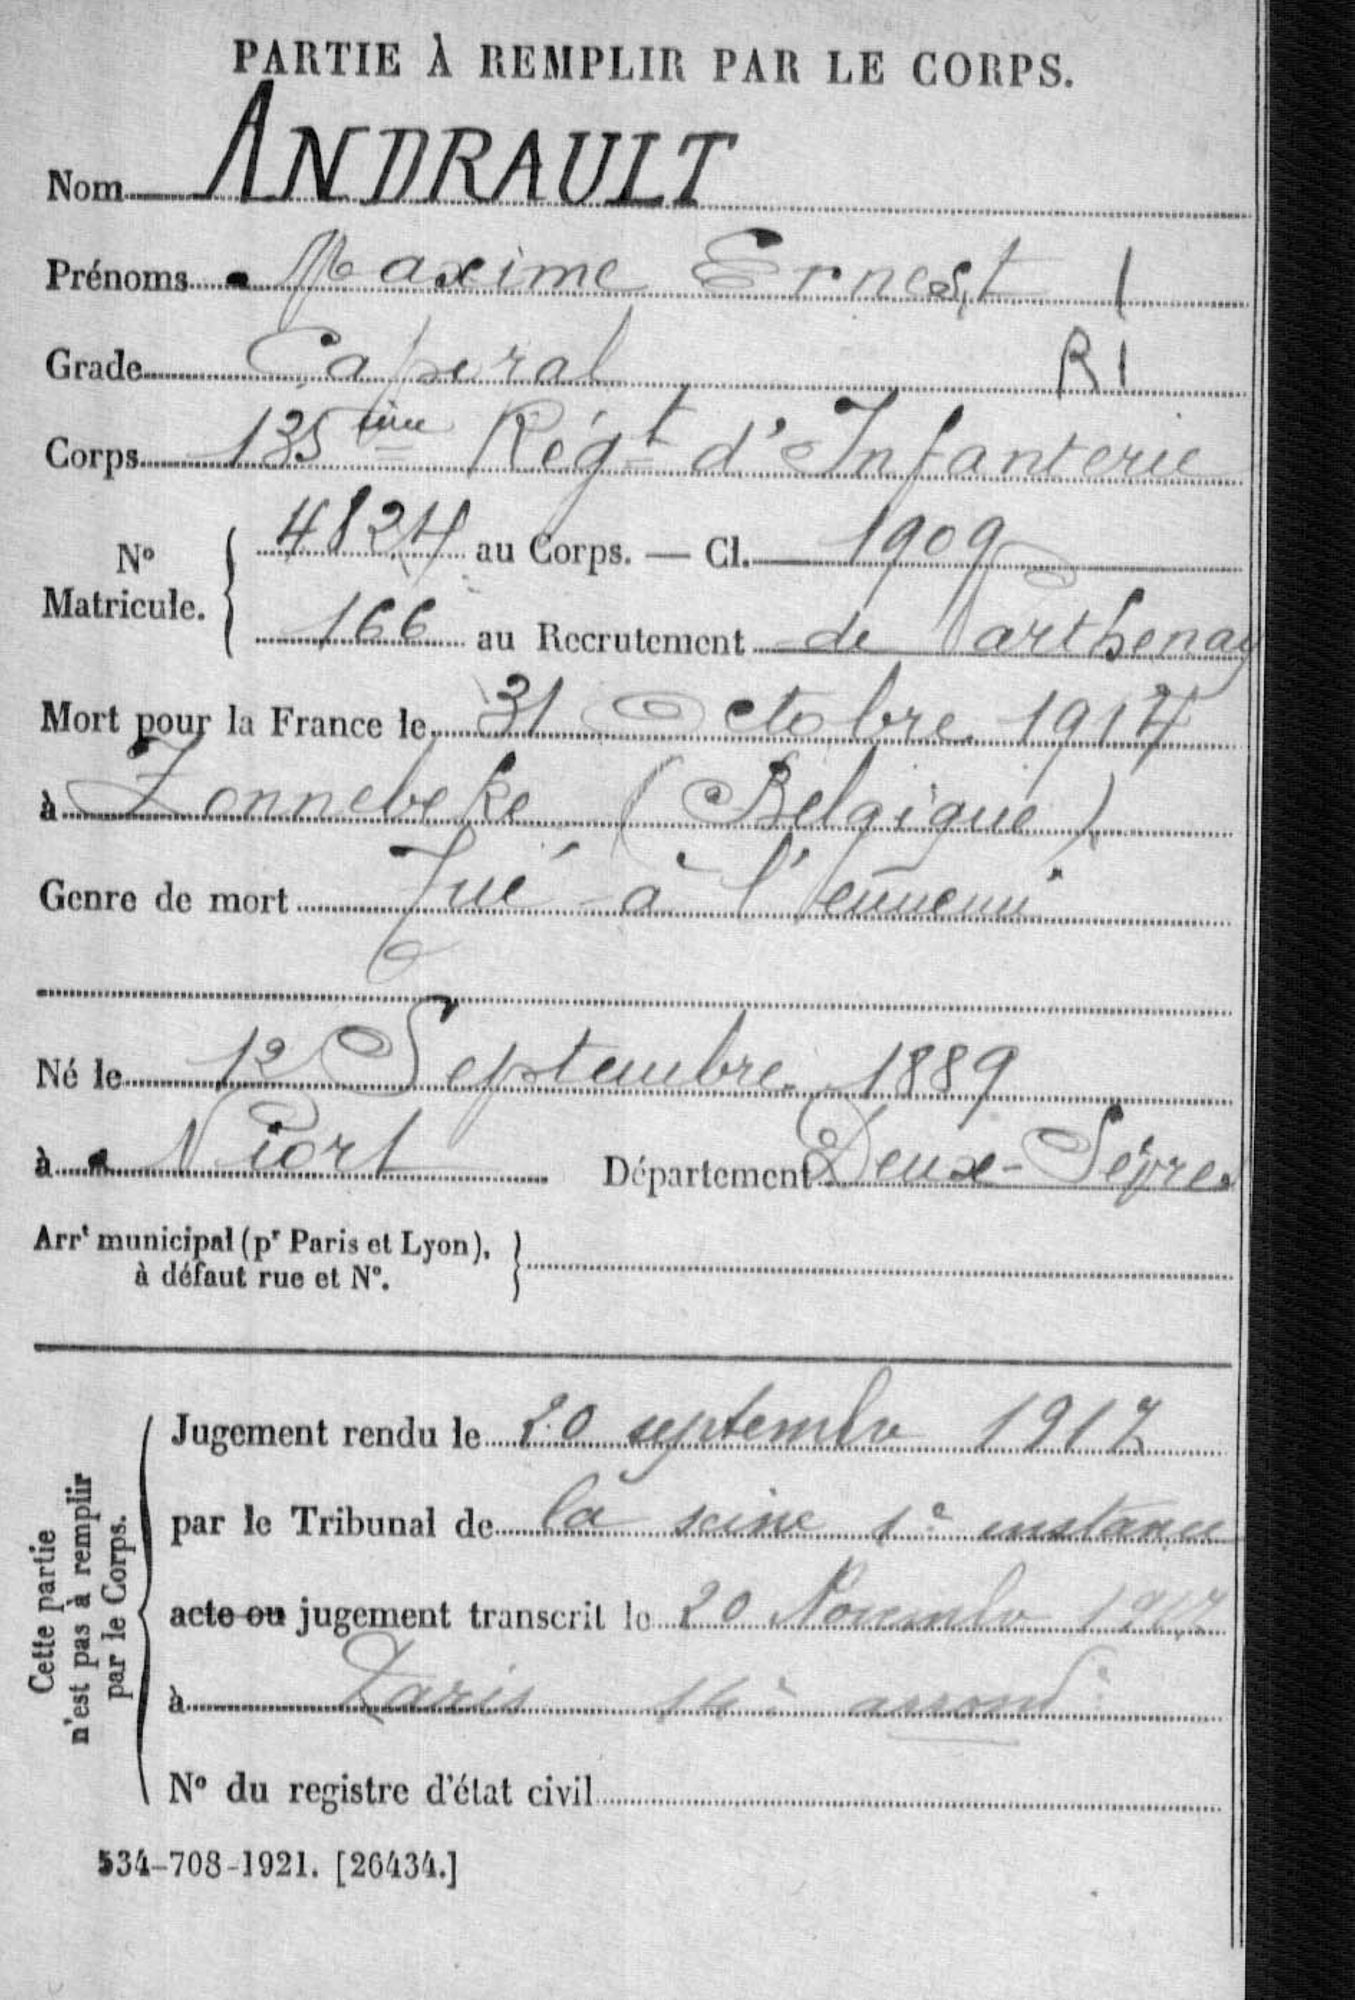 PARTIE À REMPLIR PAR LE CORPS.
Nom ANDRAULT
Prénoms Maxime Ernest 1
Grade Caporal R1
Corps 135ème Régt d'Infanterie
N° Matricule. { 4824 au Corps. — Cl. 1909
166 au Recrutement de Parthenay
Mort pour la France le 31 Octobre 1914
à Zonnebeke (Belgique)
Genre de mort Tué à l'ennemi
Né le 12 Septembre 1889
à Niort Département Deux-Sèvres
Arrt municipal (pr Paris et Lyon), à défaut rue et N°. }
Cette partie n'est pas à remplir par le Corps.
Jugement rendu le 20 septembre 1917
par le Tribunal de la seine 1e instance
acte ou jugement transcrit le 20 Novembre 1917
à Paris arrondt
N° du registre d'état civil
534-708-1921. [26434.]